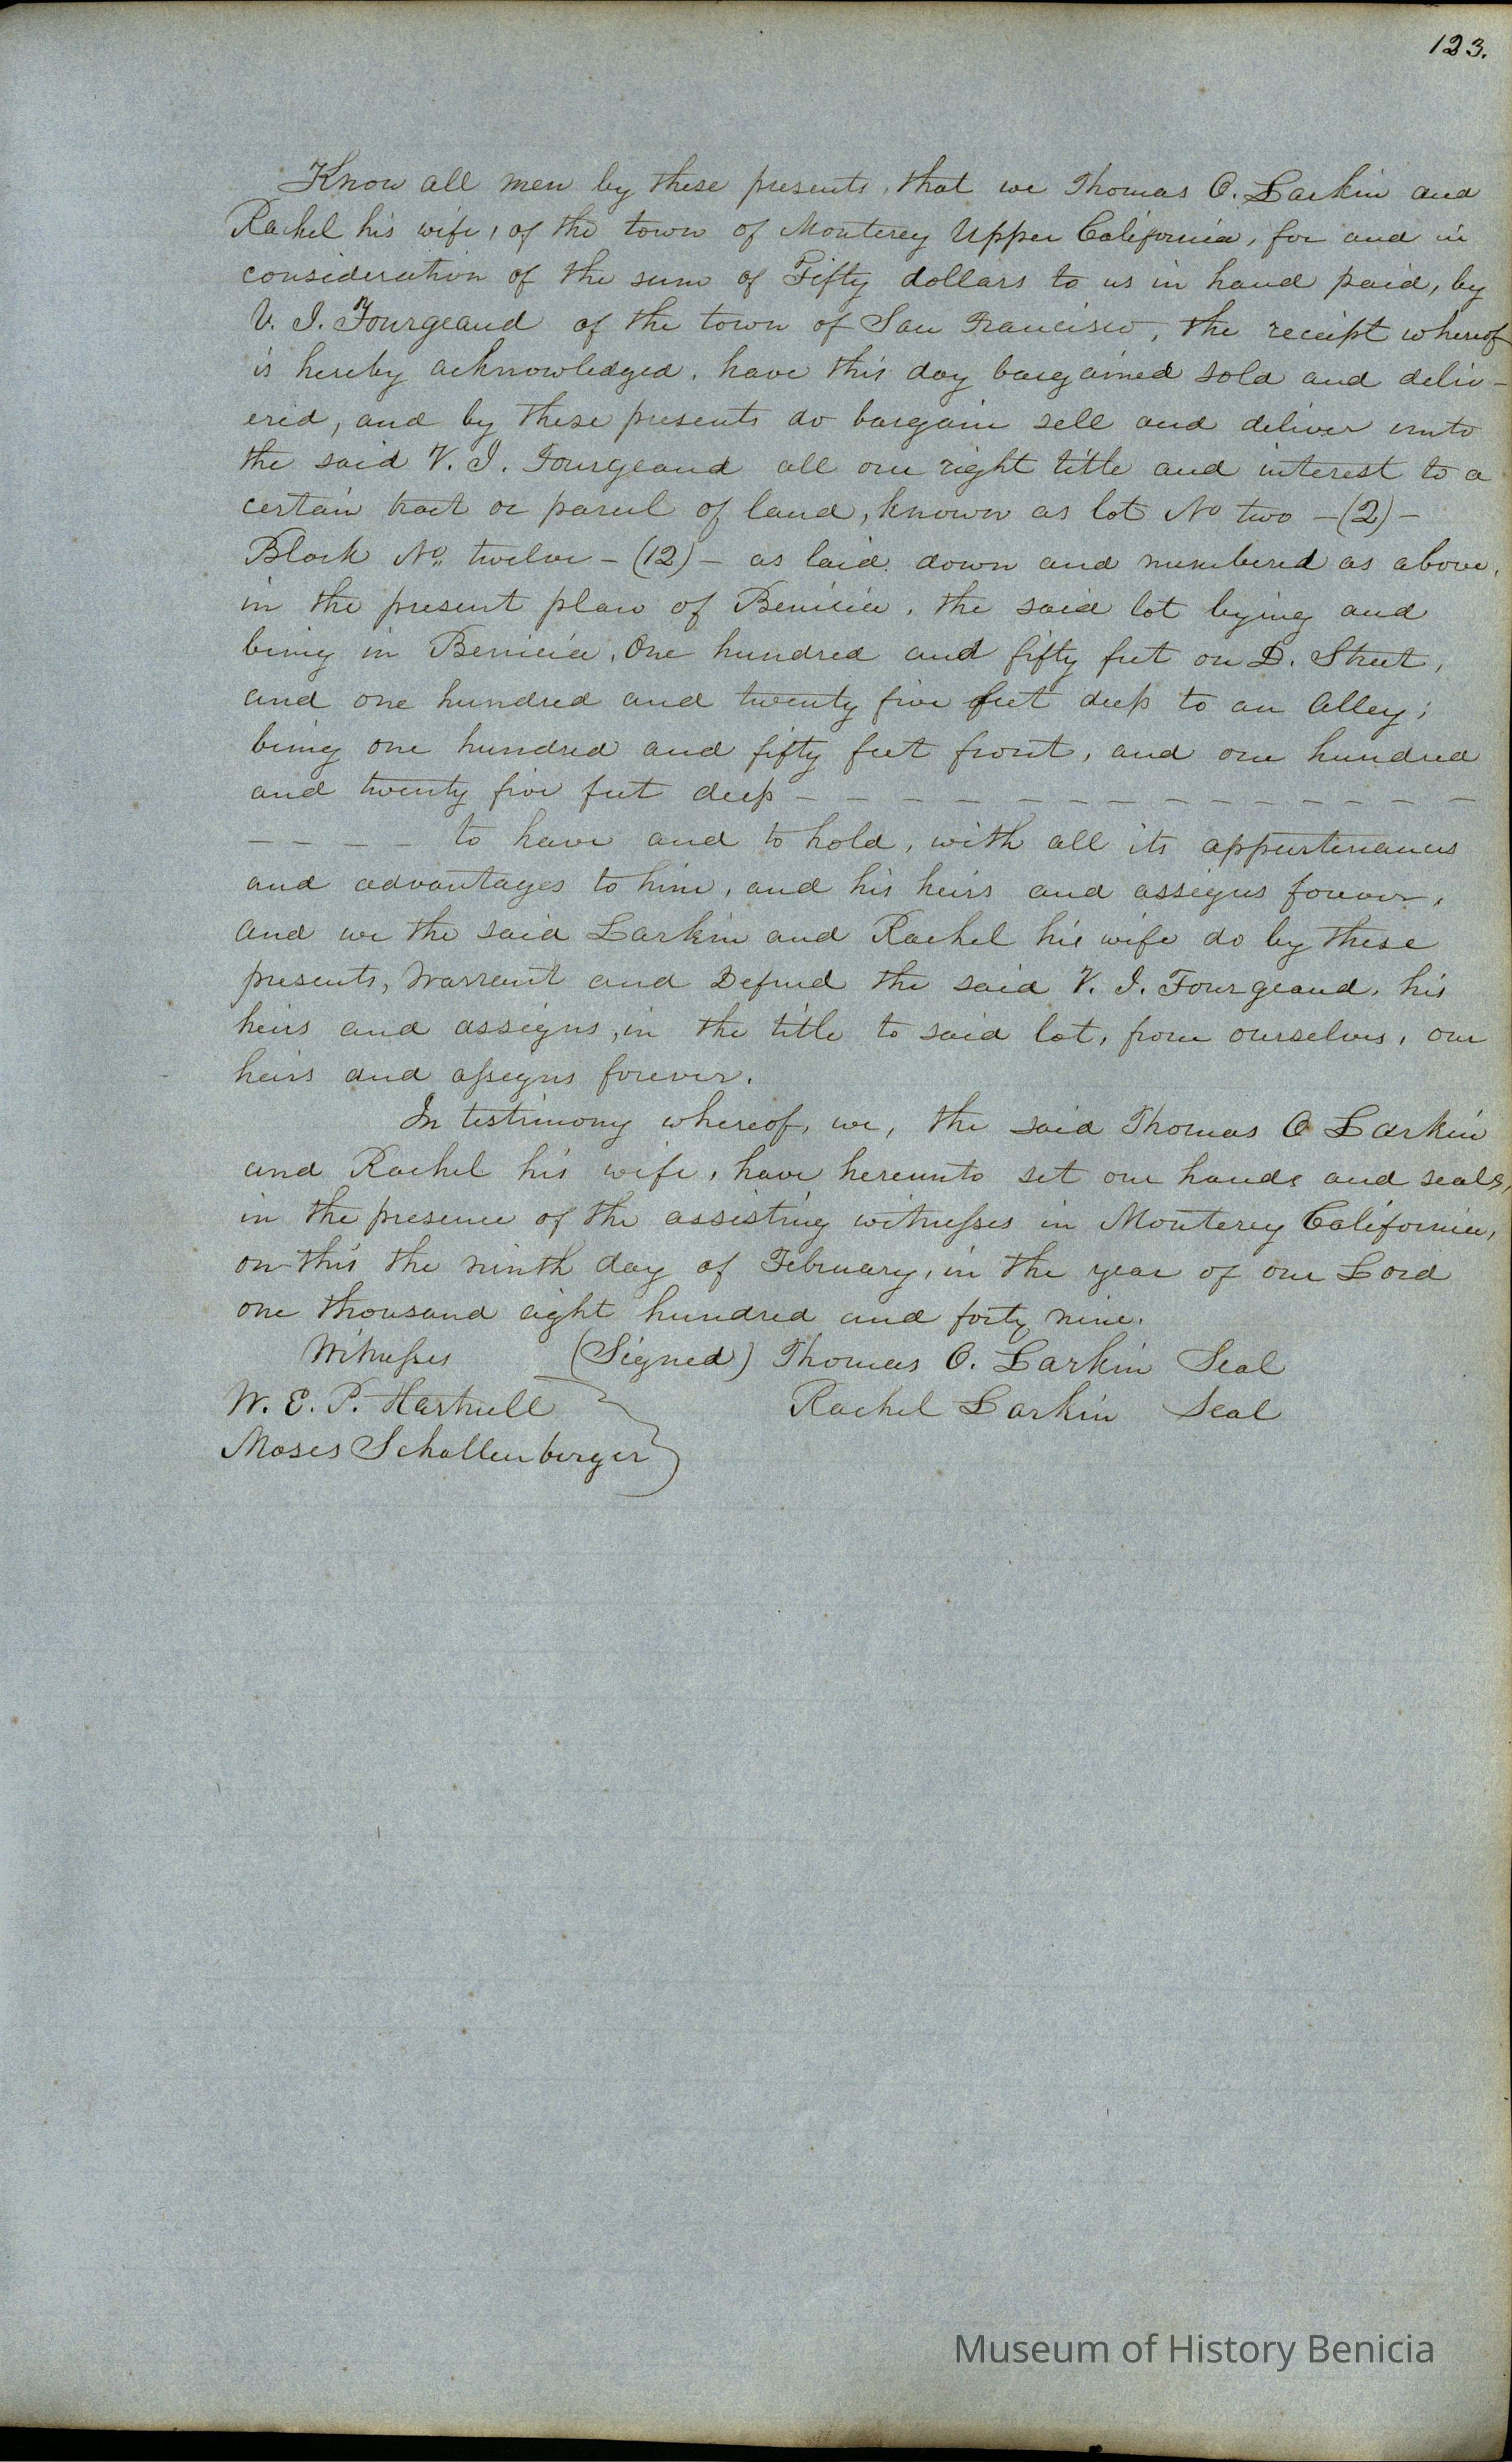 123.
Know all men by these presents, that we Thomas O. Larkin and
Rachel his wife, of the town of Monterey Upper California, for and in
consideration of the sum of Fifty dollars to us in hand paid, by
V. J. Fourgeaud of the town of San Francisco, the receipt whereof
is hereby acknowledged, have this day bargained sold and deliv-
ered, and by these presents do bargain sell and deliver unto
the said V. J. Fourgeaud all our right title and interest to a
certain tract or parcel of land, known as lot No two -(2)-
Block No. twelve -(12)- as laid down and numbered as above,
in the present plan of Benicia, the said lot lying and
being in Benicia, One hundred and fifty feet on D. Street,
and one hundred and twenty five feet deep to an Alley;
being one hundred and fifty feet front, and one hundred
and twenty five feet deep - - - - - - - - - - - - -
- - - - to have and to hold, with all its appurtenances
and advantages to him, and his heirs and assigns forever,
and we the said Larkin and Rachel his wife do by these
presents, Warrant and Defend the said V. J. Fourgeaud, his
heirs and assigns, in the title to said lot, from ourselves, our
heirs and assigns forever.
In testimony whereof, we, the said Thomas O Larkin
and Rachel his wife, have hereunto set our hands and seals,
in the presence of the assisting witnesses in Monterey California,
on this the ninth day of February, in the year of our Lord
one thousand eight hundred and forty nine.
Witnesses (Signed) Thomas O. Larkin Seal
W. E. P. Hartnell Rachel Larkin Seal
Moses Schallenberger
Museum of History Benicia